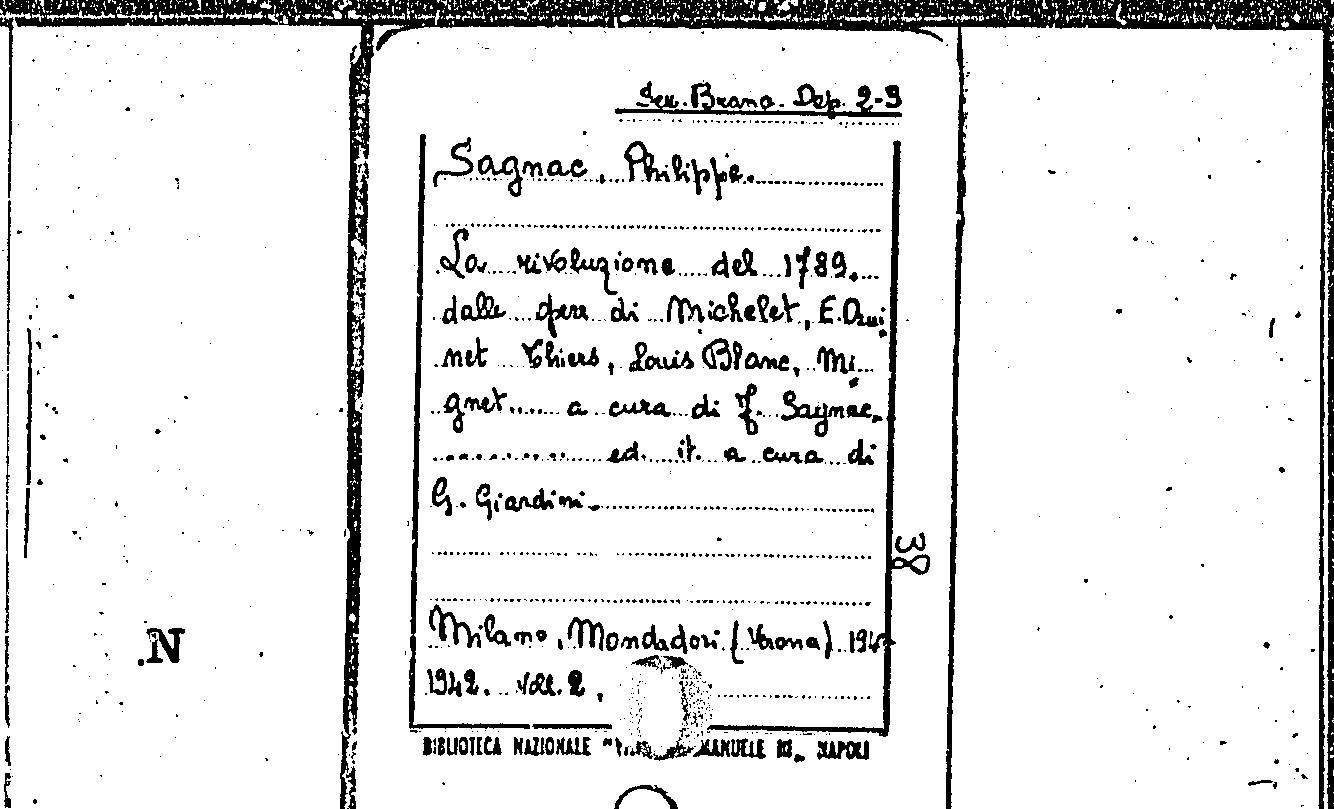 Ser. Brano. Dep. 2-9
Sagnac, Philippe.
La rivoluzione del 1789.
dalle opere di Michelet, E. Qui
net Thiers, Louis Blanc, Mi
gnet..... a cura di F. Sagnac.
............ ed. it. a cura di
G. Giardini.
38
Milano, Mondadori (Verona)
1942. voll. 2,
BIBLIOTECA NAZIONALE NAPOLI
.N